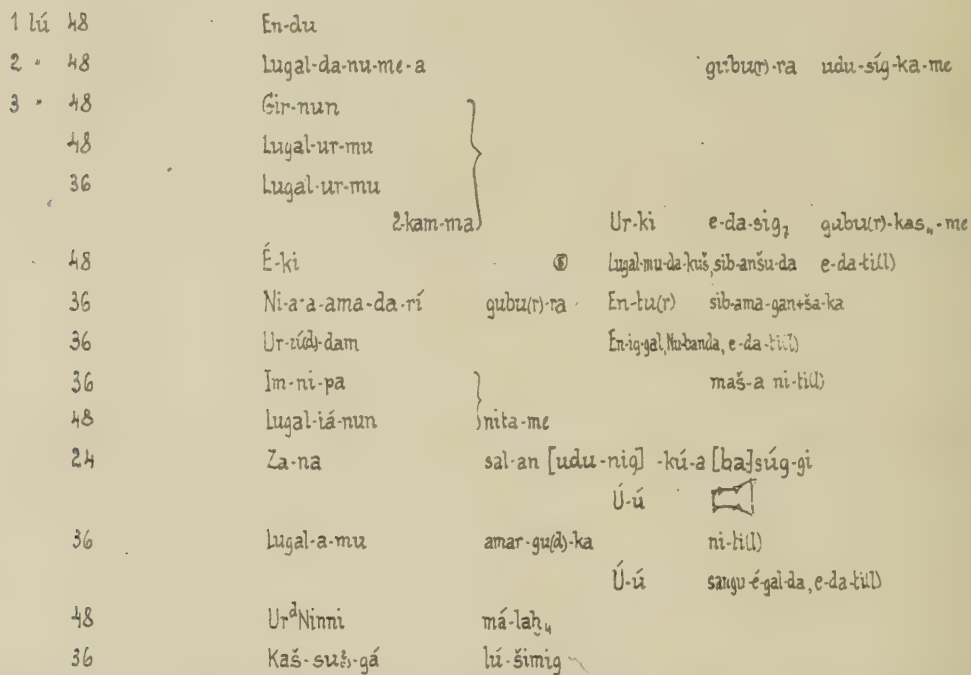 1 lú 48 En-du
2 " 48 Lugal-da-nu-me-a gubu(r)-ra udu-síg-ka-me
3 " 48 Gir-nun
48 Lugal-ur-mu
36 Lugal-ur-mu
2-kam-ma Ur-ki e-da-sig₇ gubu(r)-kas₄-me
48 É-ki Lugal-mu-da-kuš, sib-anšu-da e-da-ti(l)
36 Ni-a-a-ama-da-rí gubu(r)-ra En-tu(r) sib-ama-gan+ša-ka
36 Ur-zú(d)-dam En-ig-gal, Nu-banda, e-da-ti(l)
36 Im-ni-pa maš-a ni-ti(l)
48 Lugal-iá-nun nita-me
24 Za-na sal-an [udu-nig] -kú-a [ba]súg-gi
Ú-ú
36 Lugal-a-mu amar-gu(d)-ka ni-ti(l)
Ú-ú sangu-é-gal-da, e-da-ti(l)
48 Ur ᵈNinni má-laḫ₄
36 Kaš-su(b)-gá lú-šimig